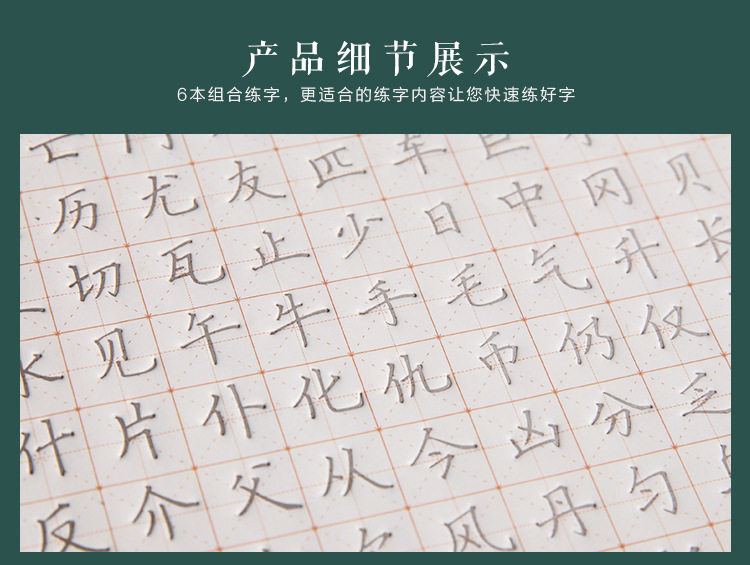 产品细节展示
6本组合练字，更适合的练字内容让您快速练好字
历尤友匹车巨
切瓦止少日中冈贝
水见午牛手毛气升长
什片仆化仇币仍仅
反介父从今凶分乏
风丹匀